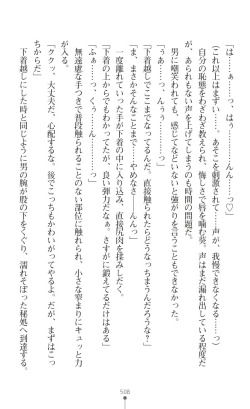 「は……ぁ……っ、はぅ……ぁ……んん……っ♡」
(これ以上はまずい……。あそこを刺激されて……声が、我慢できなくなる……っ)
自分の恥態をわざわざ教えられ、悔しさで唇を噛む葵。声はまだ漏れ出している程度だ
が、あられもない声を上げてしまうのも時間の問題だ。
男に嘲笑われても、感じてなどいないと強がりを言うこともできなかった。
「下着越しでこうなってるんだ。直接触られたらどうなっちまうんだろうな？」
「ま、まさかそんなことまで……やめなさ……んんっ」
「あ……っ、んぅ……」
一度離れていった手が下着の中に入り込み、直接尻肉を揉みしだく。
「下着の上からでもわかってたが、良い弾力だなぁ。さすがに鍛えてるだけはある」
「ふぁ……っ、くぅ……ん……っ」
無遠慮な手つきで普段触れられることのない部位に触れられ、小さな窄まりにキュッと力
が入る。
「ククッ、大丈夫だ、心配するな。後でこっちもかわいがってやるよ。だが、まずはこっ
ちからだ」
下着越しにした時と同じように男の腕が股の下をくぐり、濡れそぼった秘処へ到達する。
508